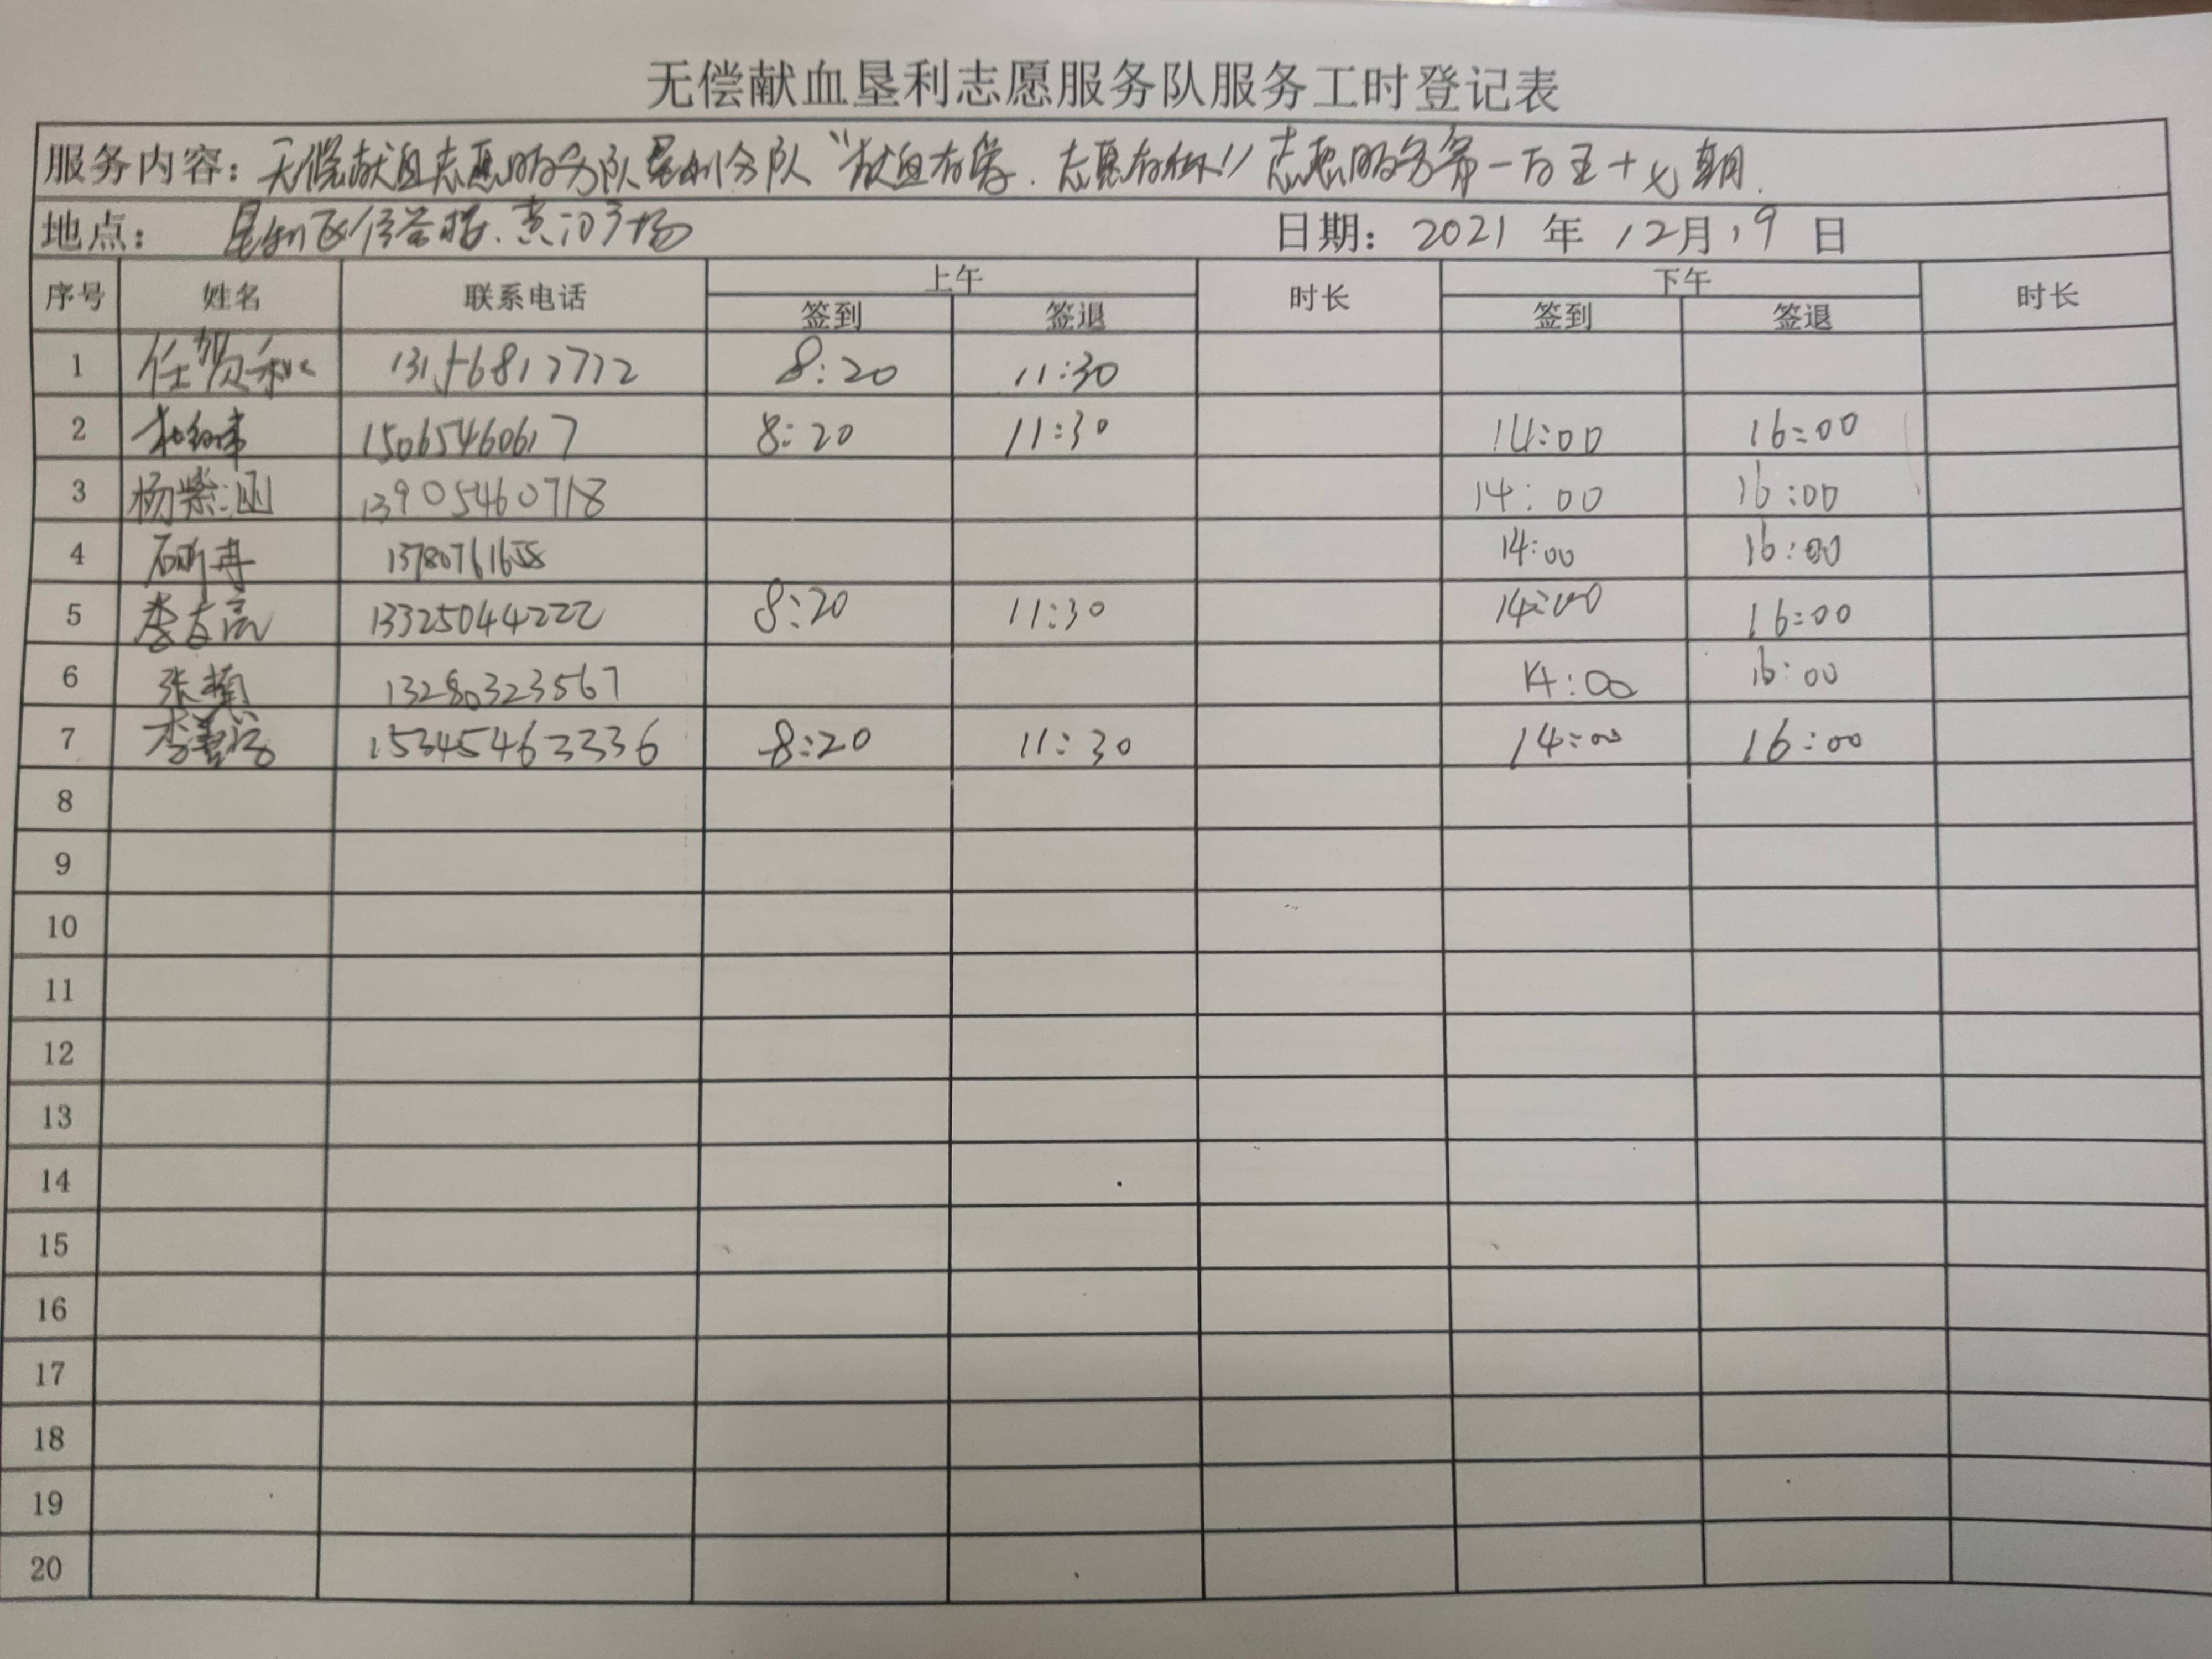 无偿献血垦利志愿服务队服务工时登记表
服务内容：无偿献血志愿服务队垦利分队“献血有学，志愿有你”志愿服务第一百五十七期.
地点： 垦利区信誉楼、黄河广场 日期：2021 年 12月 19 日
序号 姓名 联系电话 上午 时长 下午 时长
签到 签退 签到 签退
1 任贺 13156812772 8:20 11:30
2 15065460617 8:20 11:30 14:00 16:00
3 杨紫涵 13905460718 14:00 16:00
4 石昕冉 13780761658 14:00 16:00
5 李友亮 13325044222 8:20 11:30 14:00 16:00
6 张楠 13280323567 14:00 16:00
7 李 15345463336 8:20 11:30 14:00 16:00
8
9
10
11
12
13
14
15
16
17
18
19
20